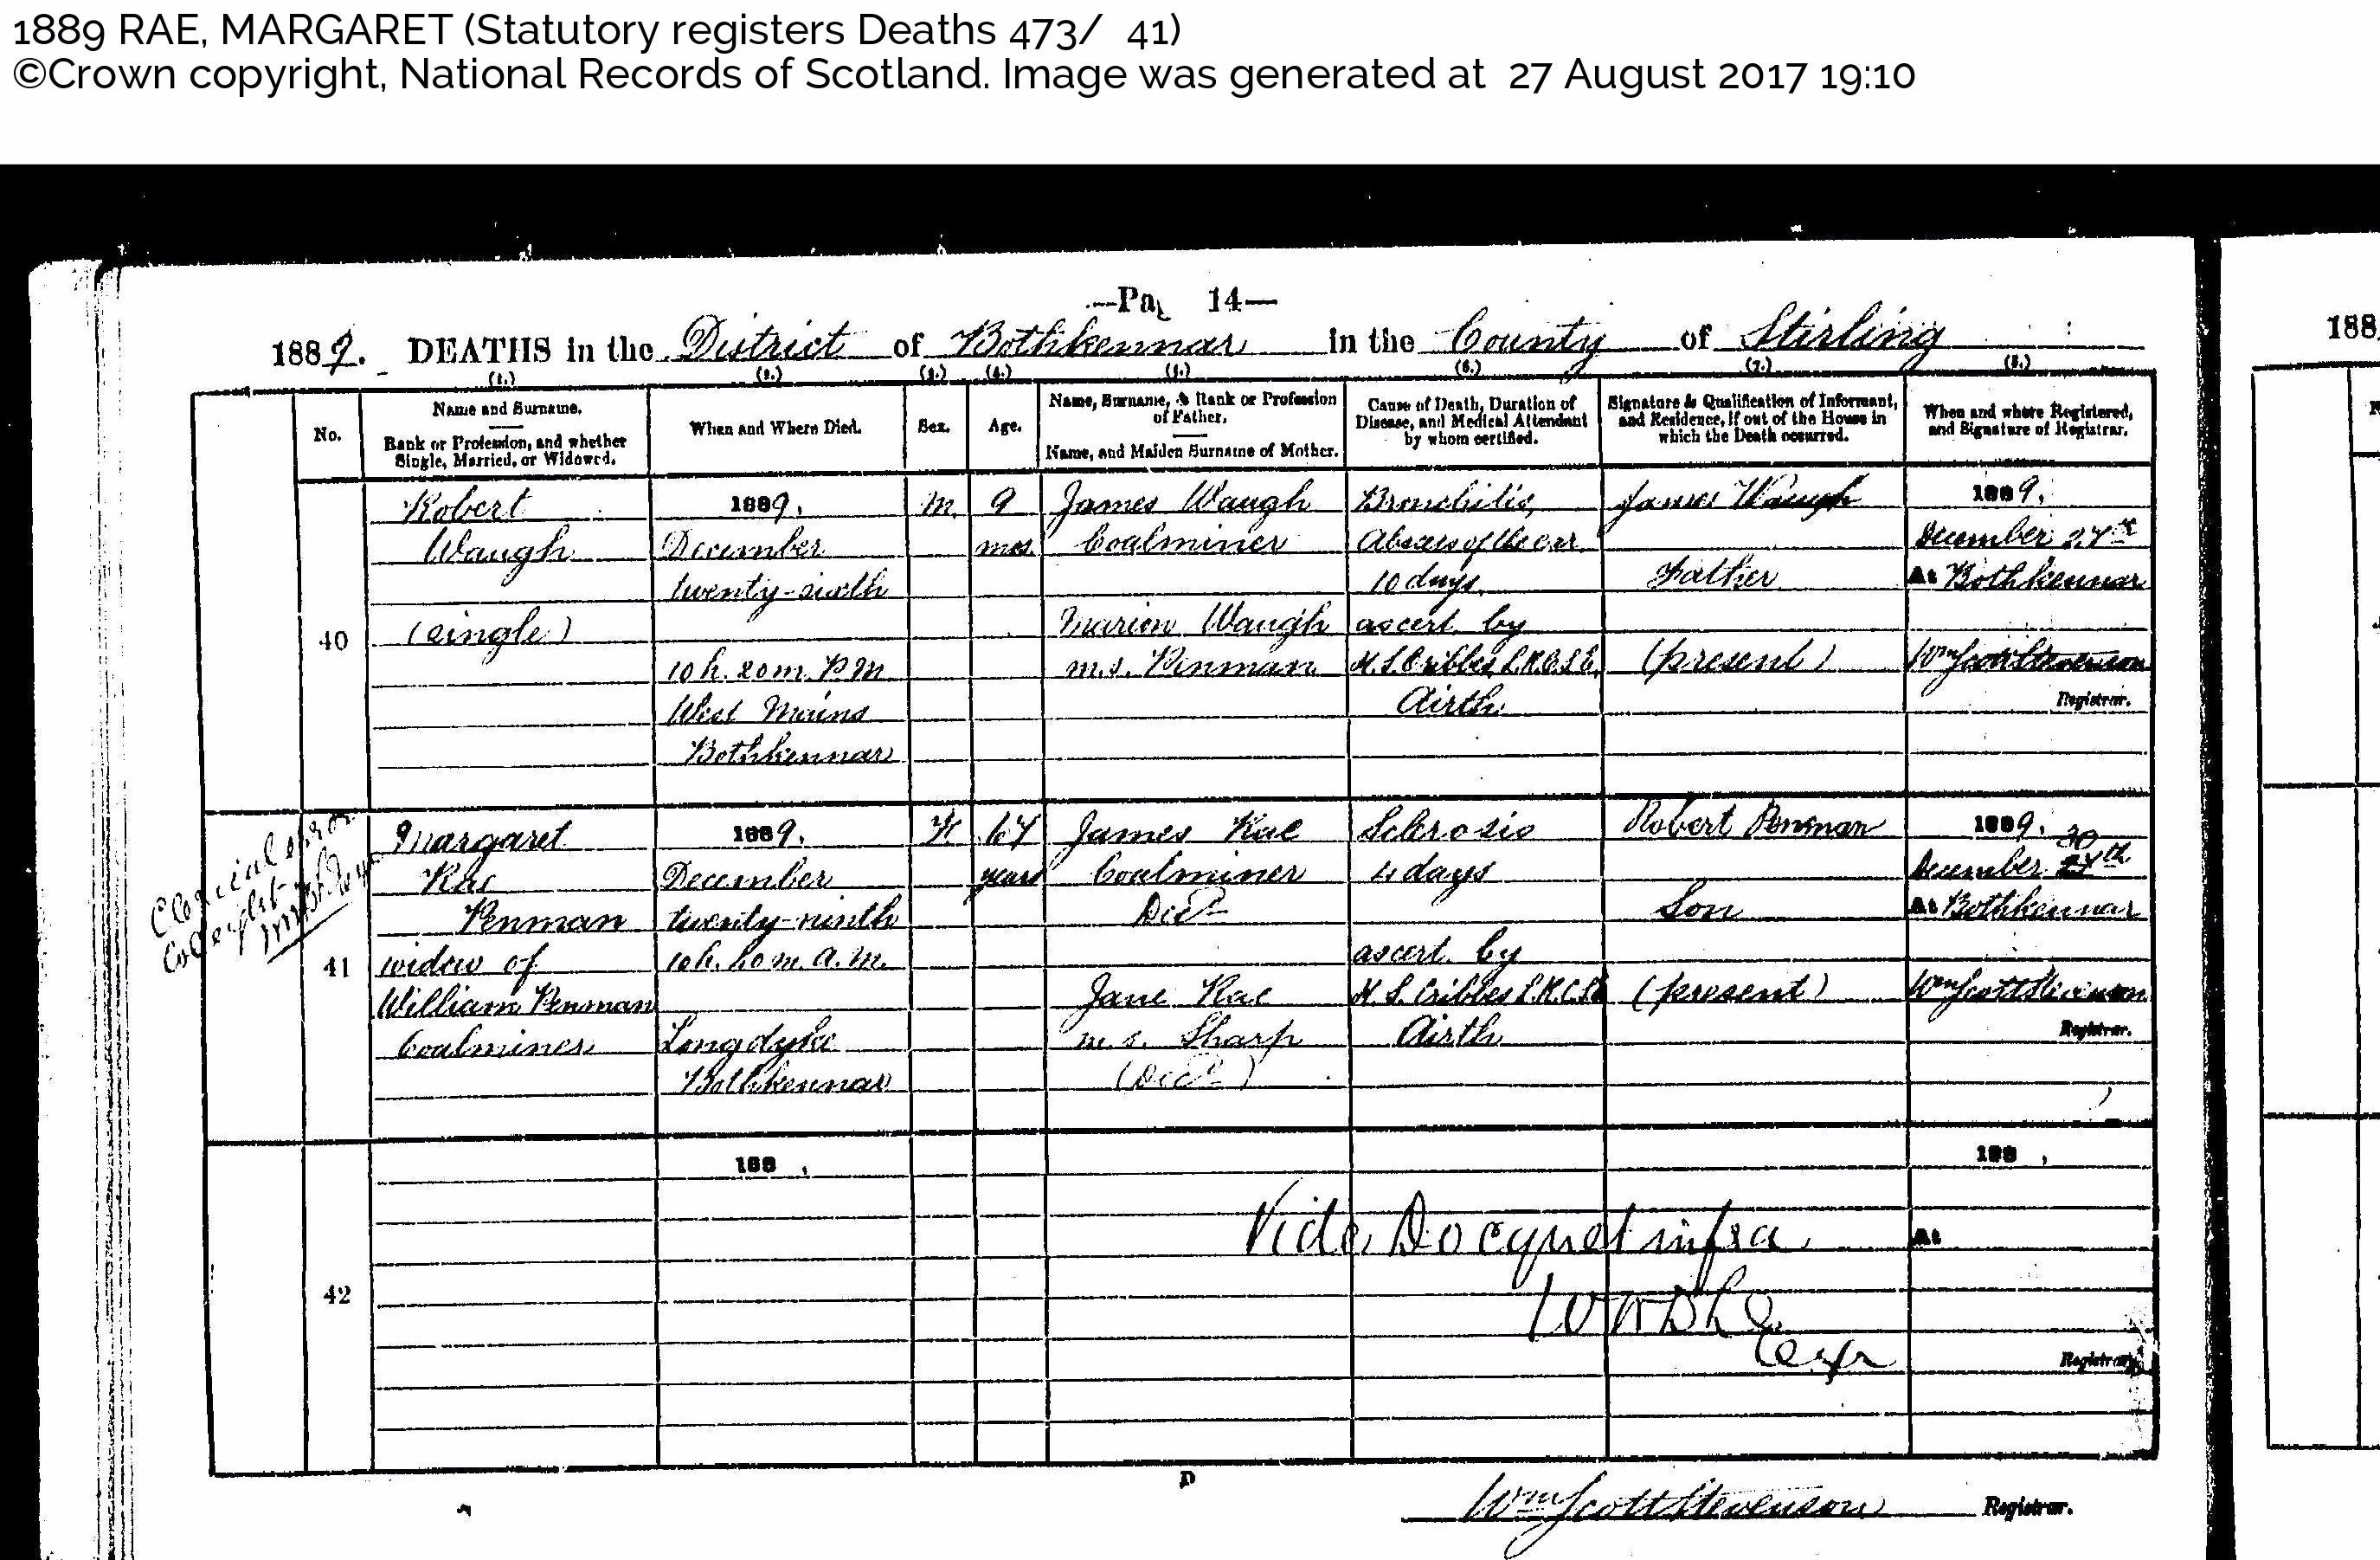 1889 RAE, MARGARET (Statutory registers Deaths 473/ 41)
©Crown copyright, National Records of Scotland. Image was generated at 27 August 2017 19:10
—Pa 14—
1889. DEATHS in the District of Bothkennar in the County of Stirling
(1.) (2.) (3.) (4.) (5.) (6.) (7.) (8.)
No.
Name and Surname.
Rank or Profession, and whether
Single, Married, or Widowed.
When and Where Died.
Sex.
Age.
Name, Surname, & Rank or Profession
of Father.
Name, and Maiden Surname of Mother.
Cause of Death, Duration of
Disease, and Medical Attendant
by whom certified.
Signature & Qualification of Informant,
and Residence, if out of the House in
which the Death occurred.
When and where Registered,
and Signature of Registrar.
40
Robert
Waugh
(single)
1889.
December
twenty-sixth
10 h. 20 m. P.M.
West Mains
Bothkennar
M.
9
mos.
James Waugh
Coalminer
Marion Waugh
m.s. Penman
Bronchitis,
Abscess of the ear
10 days.
ascert. by
Airth
James Waugh
Father
(present)
1889.
December 27th
At Bothkennar
Wm Scott Stevenson
Registrar.
Clerical error
41
Margaret
Rae
Penman
widow of
William Penman
Coalminer
1889.
December
twenty-ninth
10 h. m. A.M.
Longdyke
Bothkennar
F.
67
years
James Rae
Coalminer
Decd
Jane Rae
m.s. Sharp
(Decd)
Sclerosis
4 days
ascert. by
Airth
Robert Penman
Son
(present)
1889.
30
December 27th
At Bothkennar
Wm Scott Stevenson
Registrar.
42
188 ,
188 ,
Vide Docquet infra
At
Exr
Registrar.
D
Wm Scott Stevenson Registrar.
188